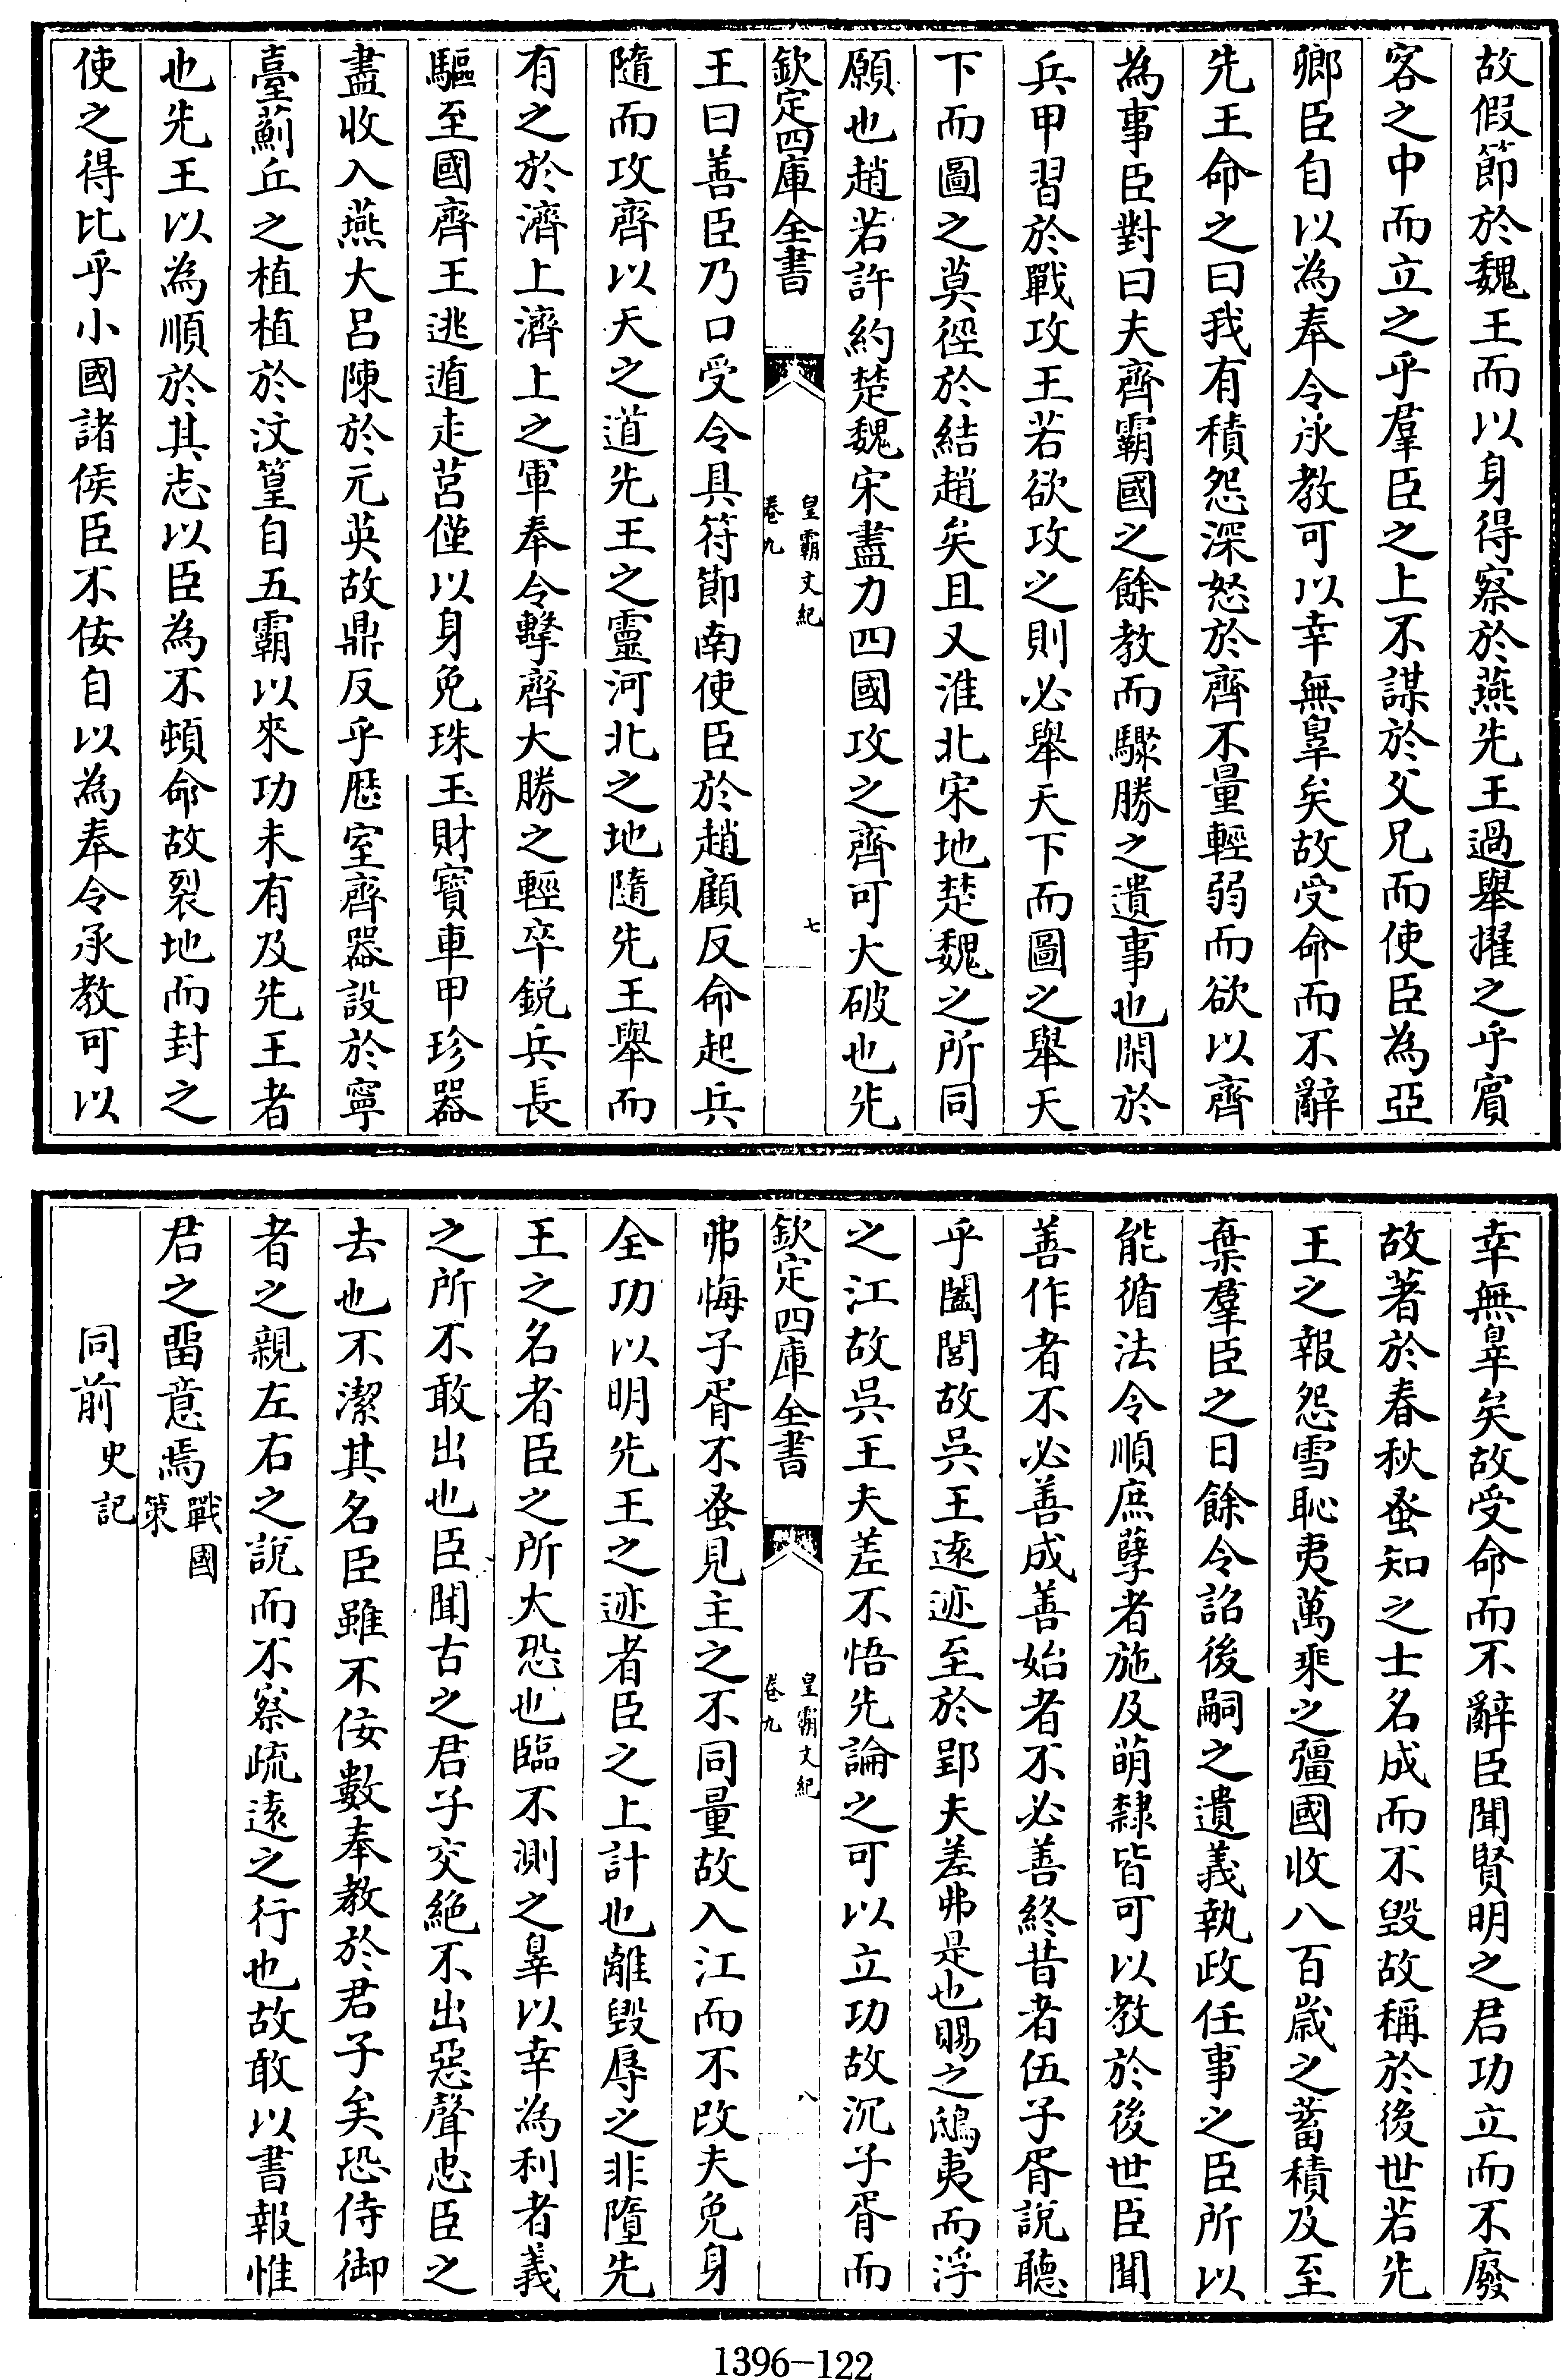 故假節於魏王而以身得察於燕先王過舉擢之乎賓
客之中而立之乎羣臣之上不謀於父兄而使臣為亞
卿臣自以為奉令承教可以幸無辠矣故受命而不辭
先王命之曰我有積怨深怒於齊不量輕弱而欲以齊
為事臣對曰夫齊霸國之餘教而驟勝之遺事也閑於
兵甲習於戰攻王若欲攻之則必舉天下而圖之舉天
下而圖之莫徑於結趙矣且又淮北宋地楚魏之所同
願也趙若許約楚魏宋盡力四國攻之齊可大破也先
欽定四庫全書
皇霸文紀
卷九
七
王曰善臣乃口受令具符節南使臣於趙顧反命起兵
隨而攻齊以天之道先王之靈河北之地隨先王舉而
有之於濟上濟上之軍奉令擊齊大勝之輕卒鋭兵長
驅至國齊王逃遁走莒僅以身免珠玉財寶車甲珍器
盡收入燕大吕陳於元英故鼎反乎厯室齊器設於寧
臺薊丘之植植於汶篁自五霸以來功未有及先王者
也先王以為順於其志以臣為不頓命故裂地而封之
使之得比乎小國諸侯臣不佞自以為奉令承教可以
幸無辠矣故受命而不辭臣聞賢明之君功立而不廢
故著於春秋蚤知之士名成而不毀故稱於後世若先
王之報怨雪恥夷萬乘之彊國收八百歲之蓄積及至
棄羣臣之日餘令詔後嗣之遺義執政任事之臣所以
能循法令順庶孽者施及萌隸皆可以教於後世臣聞
善作者不必善成善始者不必善終昔者伍子胥說聽
乎闔閭故吳王逺迹至於郢夫差弗是也賜之鴟夷而浮
之江故吳王夫差不悟先論之可以立功故沉子胥而
欽定四庫全書
皇霸文紀
卷九
八
弗悔子胥不蚤見主之不同量故入江而不改夫免身
全功以明先王之迹者臣之上計也離毀辱之非墮先
王之名者臣之所大恐也臨不測之辠以幸為利者義
之所不敢出也臣聞古之君子交絶不出惡聲忠臣之
去也不潔其名臣雖不佞數奉教於君子矣恐侍御
者之親左右之說而不察疏逺之行也故敢以書報惟
君之畱意焉戰國
策
同前史記
1396-122